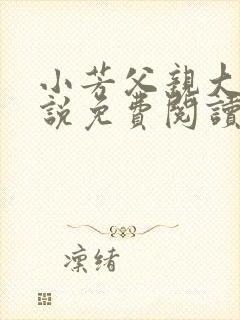 小芳父親大
說免費閱讀
凜緒